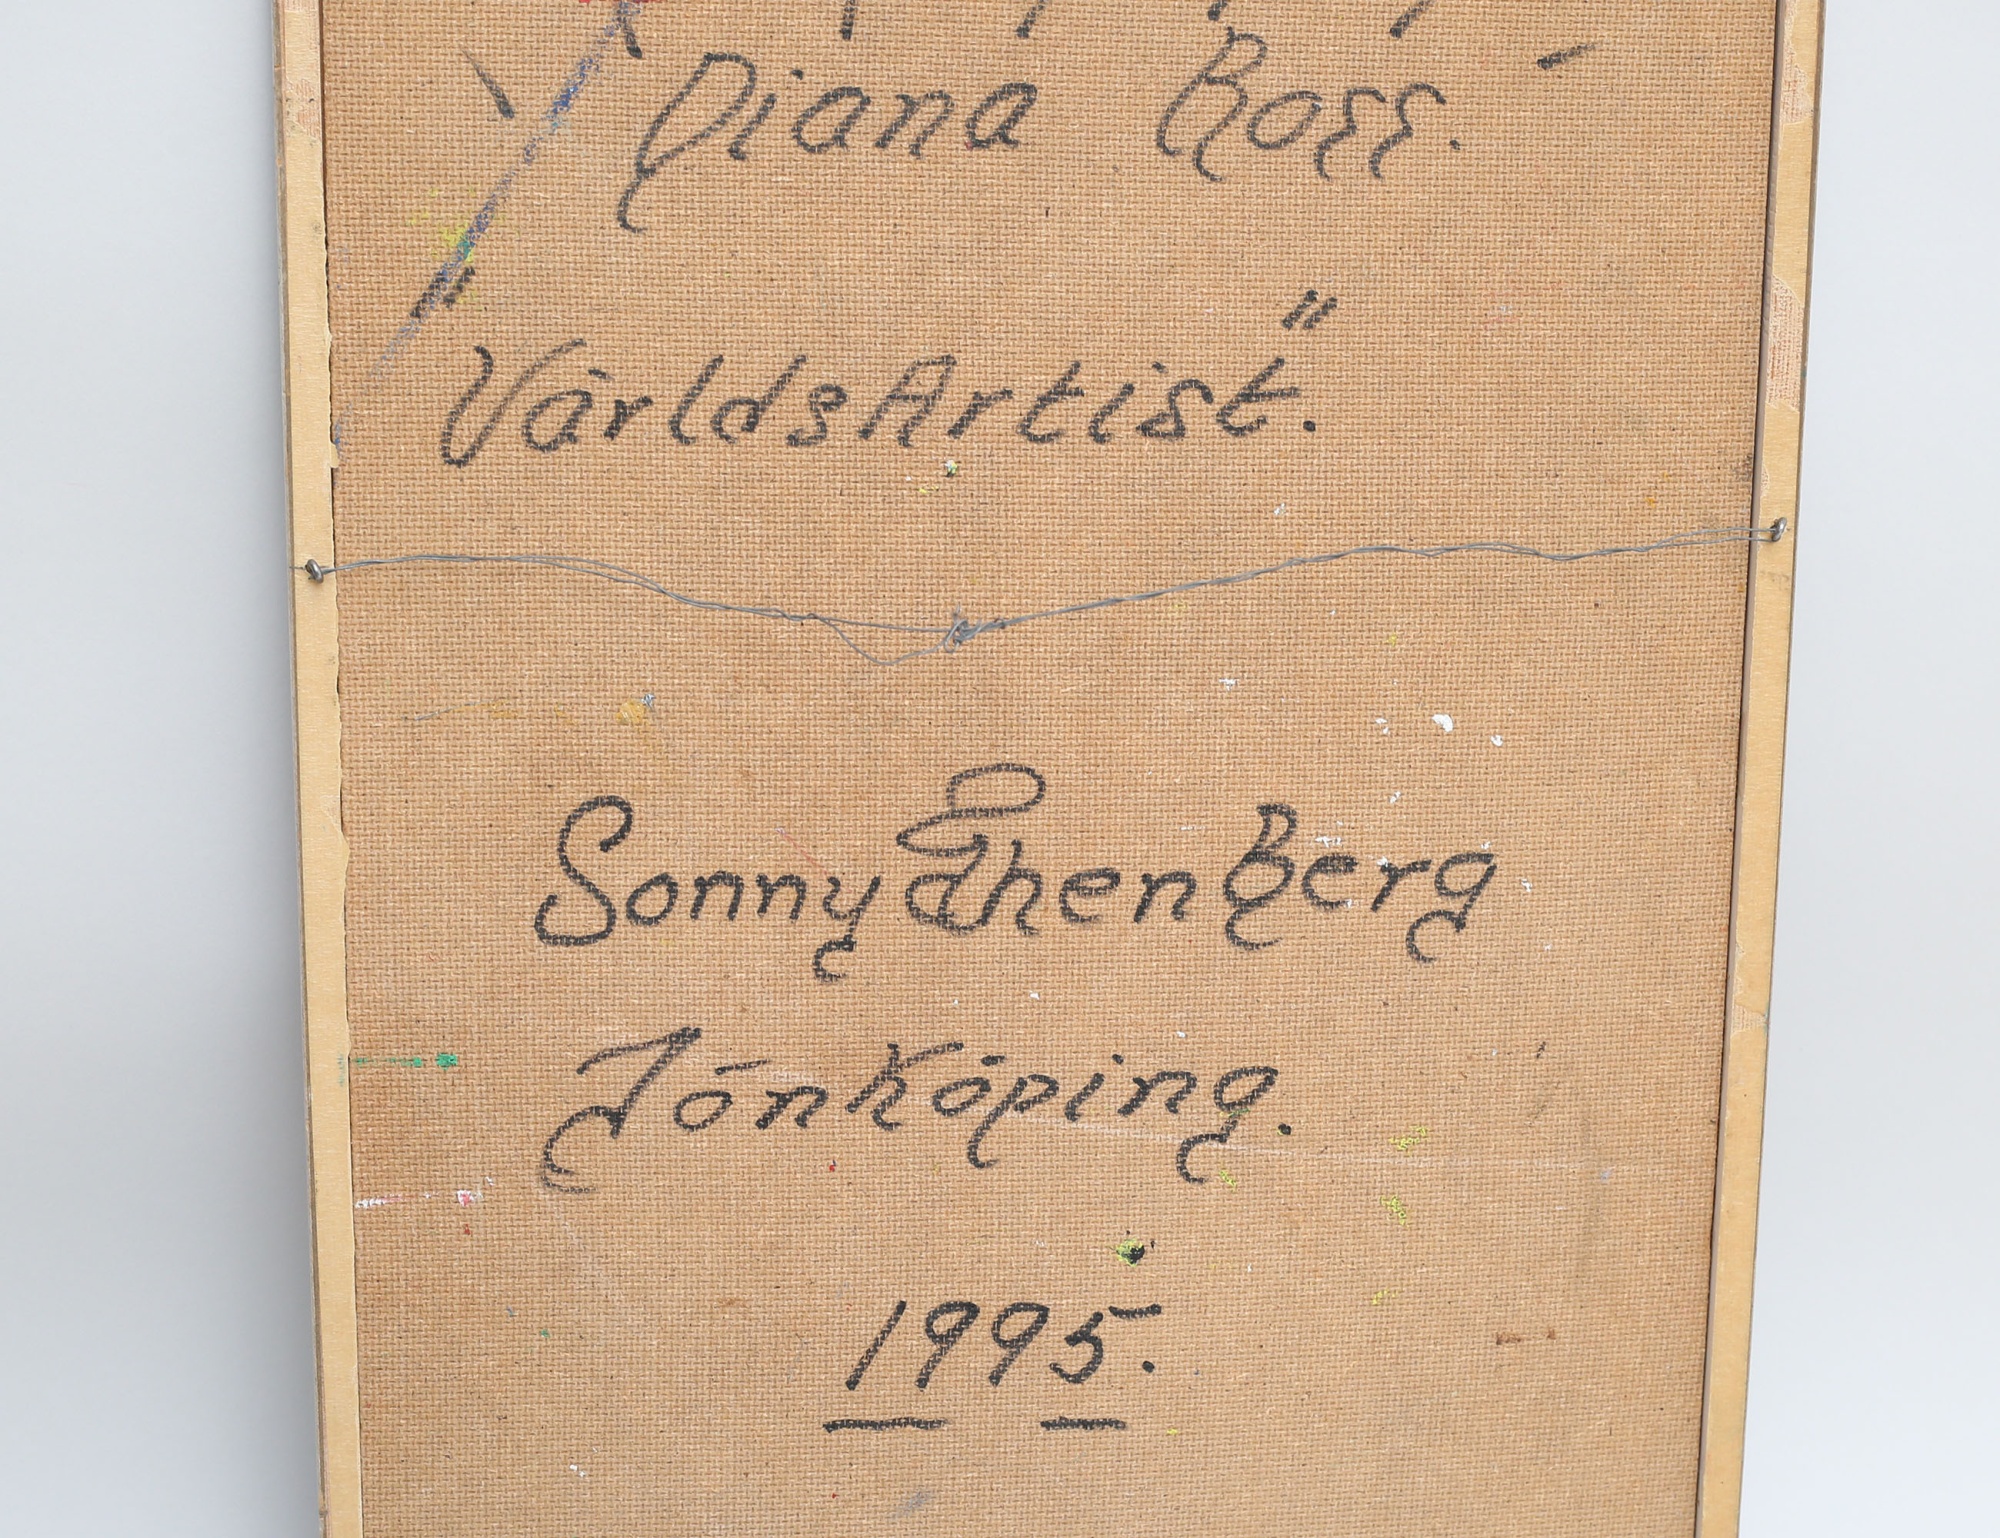 Diana Ross.
"VärldsArtist."
Sonny
Jönköping.
1995.